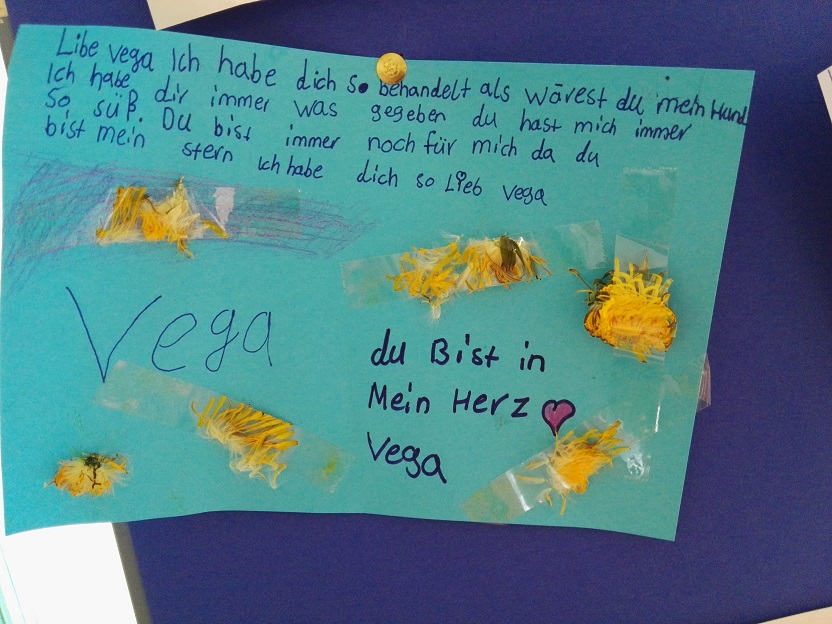 Libe vega Ich habe dich so behandelt als wärest du mein Hund
Ich habe dir immer was gegeben du hast mich immer
So süß. Du bist immer noch für mich da du
bist mein stern ich habe dich so Lieb vega
Vega
du Bist in
Mein Herz
Vega